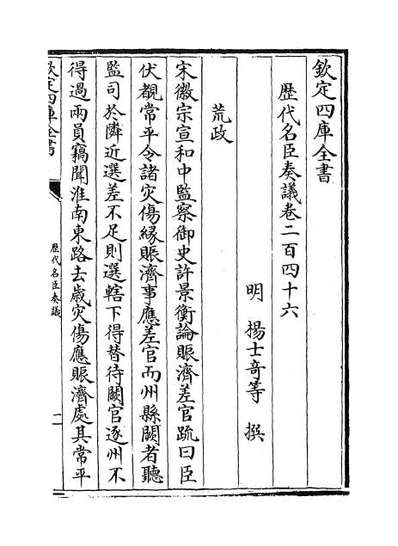 欽定四庫全書
歴代名臣奏議卷二百四十六
明　楊士奇等　撰
荒政
宋徽宗宣和中監察御史許景衡論賑濟差官䟽曰臣
伏覩常平令諸灾傷縁賑濟事應差官而州縣闕者聽
監司於隣近選差不足則選轄下得替待闕官逐州不
得過兩員竊聞淮南東路去歲灾傷應賑濟處其常平
欽定四庫全書
歴代名臣奏議
一